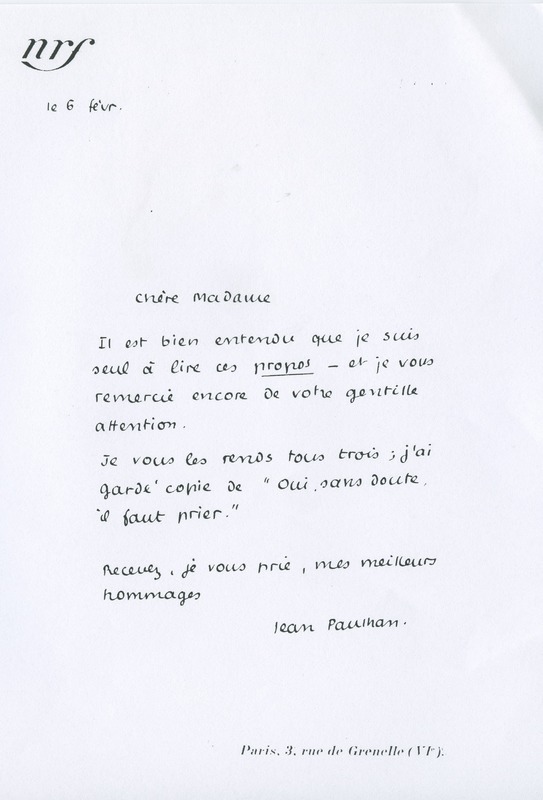 nrf
le 6 févr.
Chère Madame
Il est bien entendu que je suis
seul à lire ces propos – et je vous
remercie encore de votre gentille
attention.
Je vous les rends tous trois ; j'ai
gardé copie de " Oui, sans doute,
il faut prier."
Recevez, je vous prie, mes meilleurs
hommages
Jean Paulhan.
Paris, 3, rue de Grenelle (VIe).